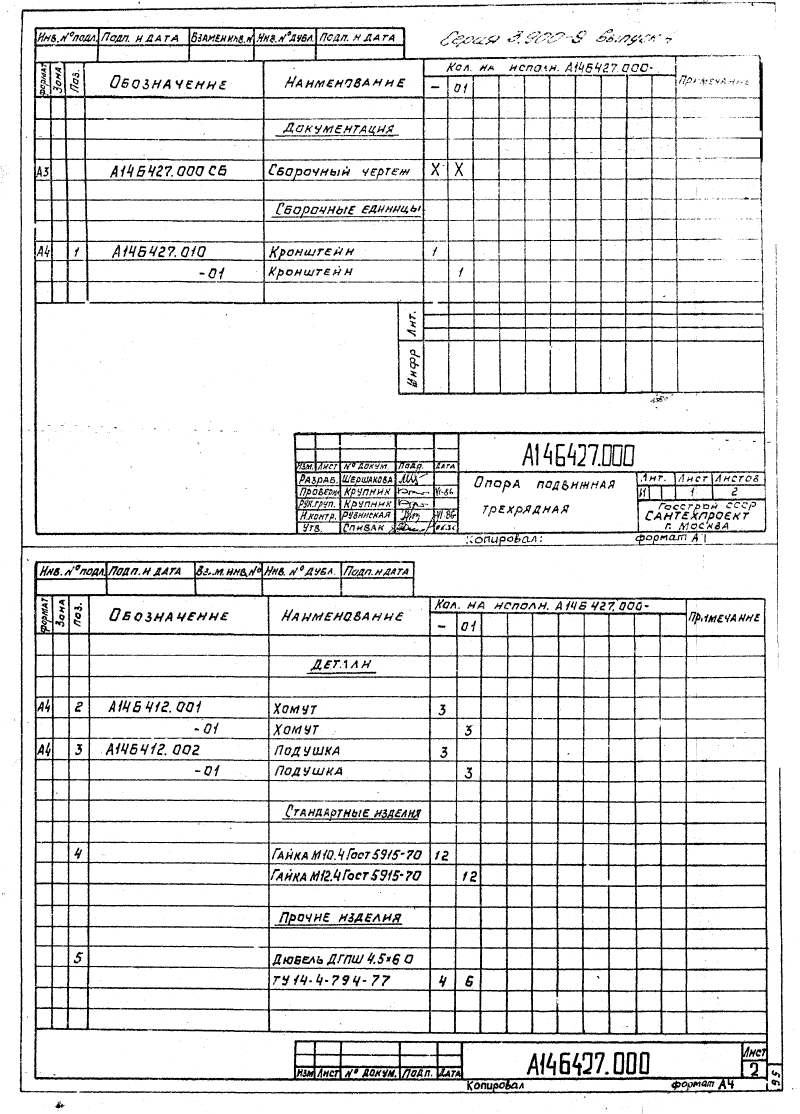 Инв. № подл. Подп. и дата Взамен инв. № Инв. № дубл. Подп. и дата
Серия 3.900-9 Выпуск
формат Зона Поз. Обозначение Наименование Кол. на исполн. А14Б427.000- Примечание
- 01
Документация
А3 А14Б427.000 СБ Сборочный чертеж Х Х
Сборочные единицы
А4 1 А14Б427.010 Кронштейн 1
-01 Кронштейн 1
Лит.
Шифр
А14Б427.000
Изм. Лист № докум. Подп. Дата
Разраб. Шершакова
Проверил Крупник VI-86
Рук. груп. Крупник
Н. контр. Рувинская VI-86
Утв. Спивак
Опора подвижная
трехрядная
Лит. Лист Листов
И 1 2
Госстрой СССР
САНТЕХПРОЕКТ
г. Москва
Копировал: формат А
Инв. № подл. Подп. и дата Вз.м. инв. № Инв. № дубл. Подп. и дата
формат Зона Поз. Обозначение Наименование Кол. на исполн. А14Б427.000- Примечание
- 01
Детали
А4 2 А14Б412.001 Хомут 3
-01 Хомут 3
А4 3 А14Б412.002 Подушка 3
-01 Подушка 3
Стандартные изделия
4 Гайка М10.4 Гост 5915-70 12
Гайка М12.4 Гост 5915-70 12
Прочие изделия
5 Дюбель ДГПШ 4.5×60
ТУ 14-4-794-77 4 6
Изм Лист № докум. Подп. Дата
А14Б427.000
Лист
2
Копировал формат А4
95